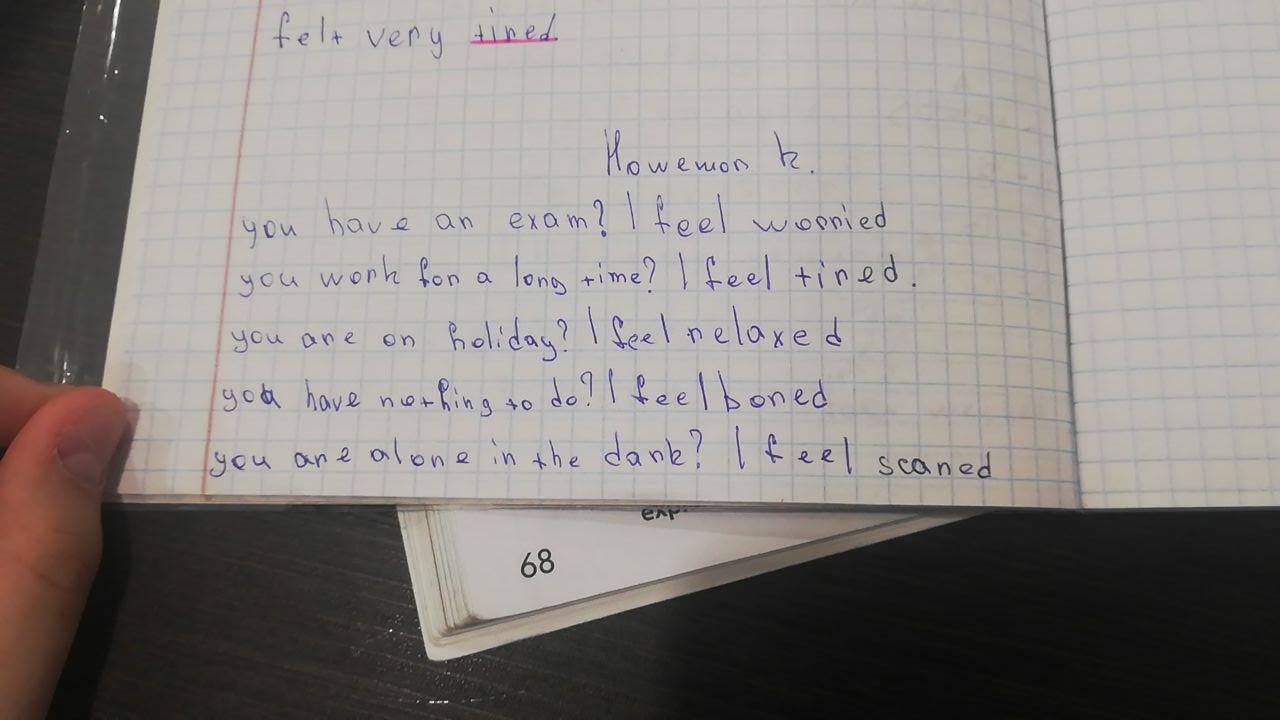 felt very tired
Howemork.
you have an exam? I feel worried
you work for a long time? I feel tired.
you are on holiday? I feel relaxed
you have nothing to do? I feel bored
you are alone in the dark? I feel scared
68